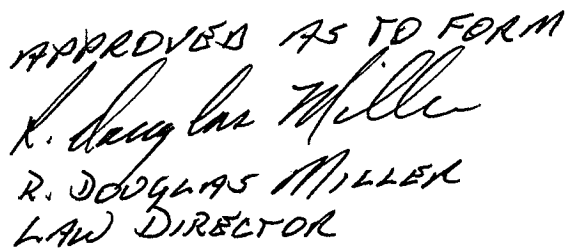 APPROVED AS TO FORM
R. Douglas Miller
R. DOUGLAS MILLER
LAW DIRECTOR